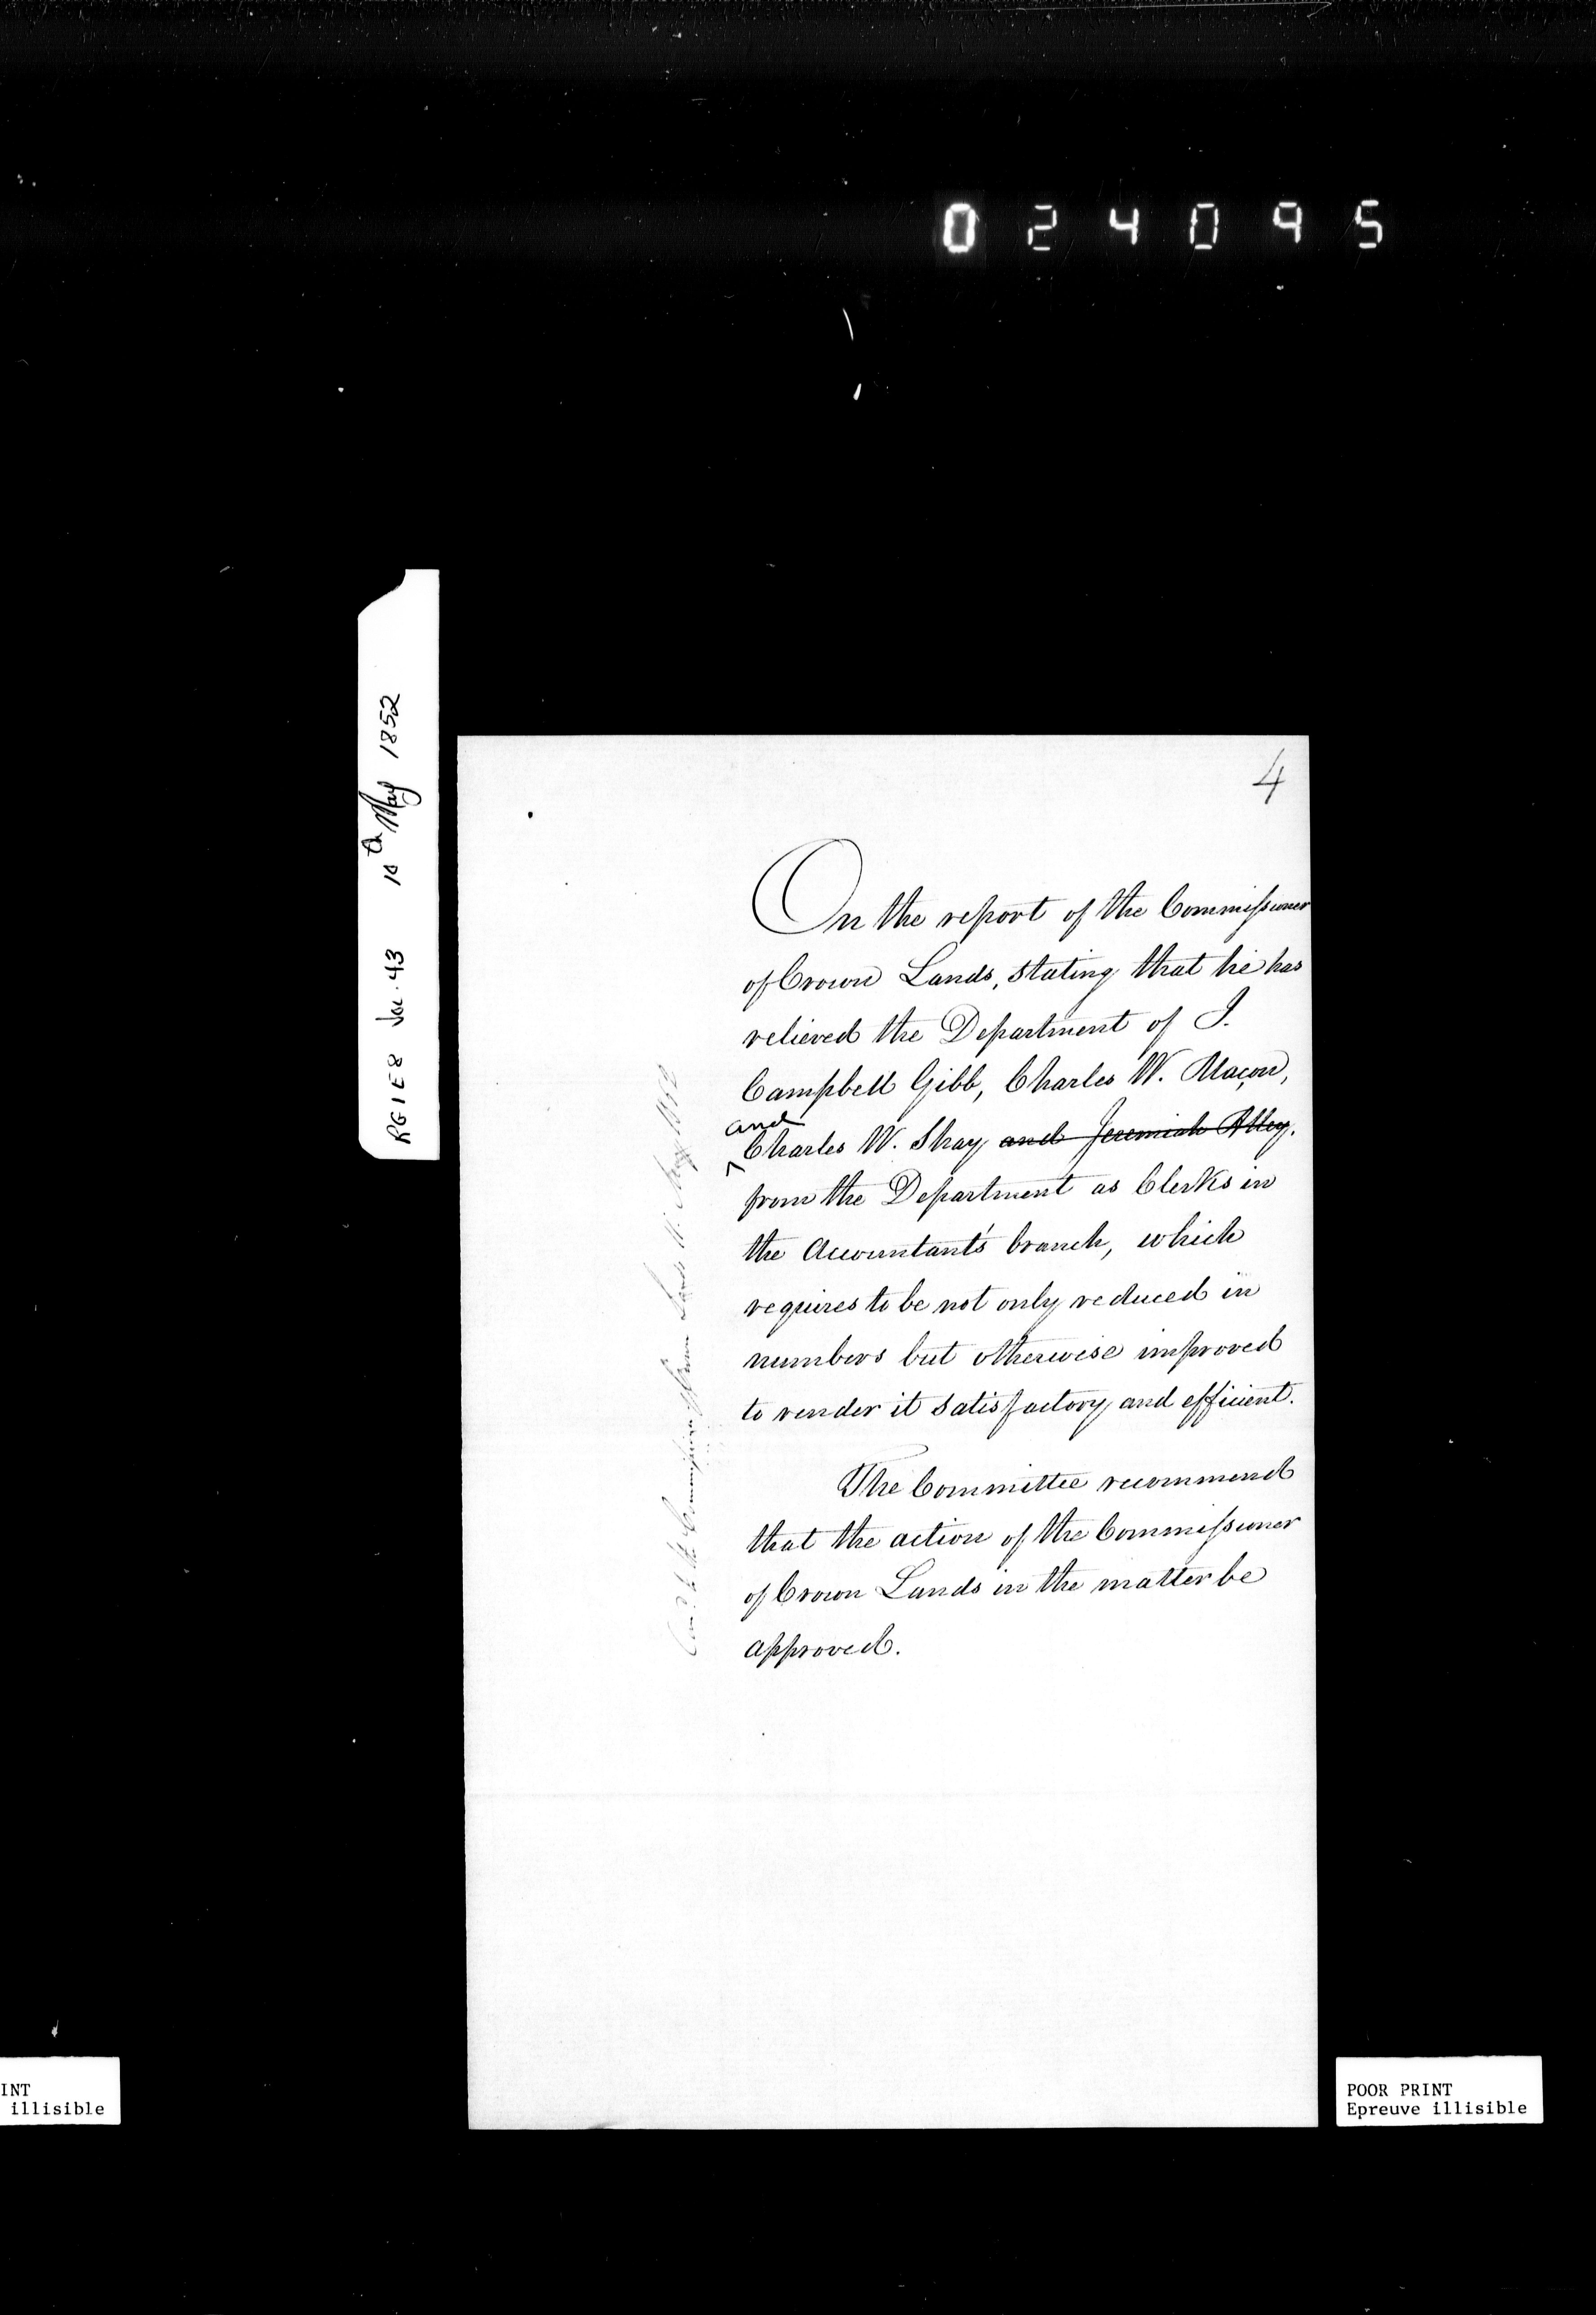 024095
RG1E8 Vol. 43 10th May 1852
4
On the report of the Commissioner
of Crown Lands, stating that he has
relieved the Department of J.
Campbell Gibb, Charles W. Maçon,
and
Charles W. Shay and Jeremiah Alley.
from the Department as Clerks in
the Accountant's branch, which
requires to be not only reduced in
numbers but otherwise improved
to render it satisfactory and efficient.
The Committee recommend
that the action of the Commissioner
of Crown Lands in the matter be
approved.
Commissioner of Crown Lands May 1852
INT
illisible
POOR PRINT
Epreuve illisible